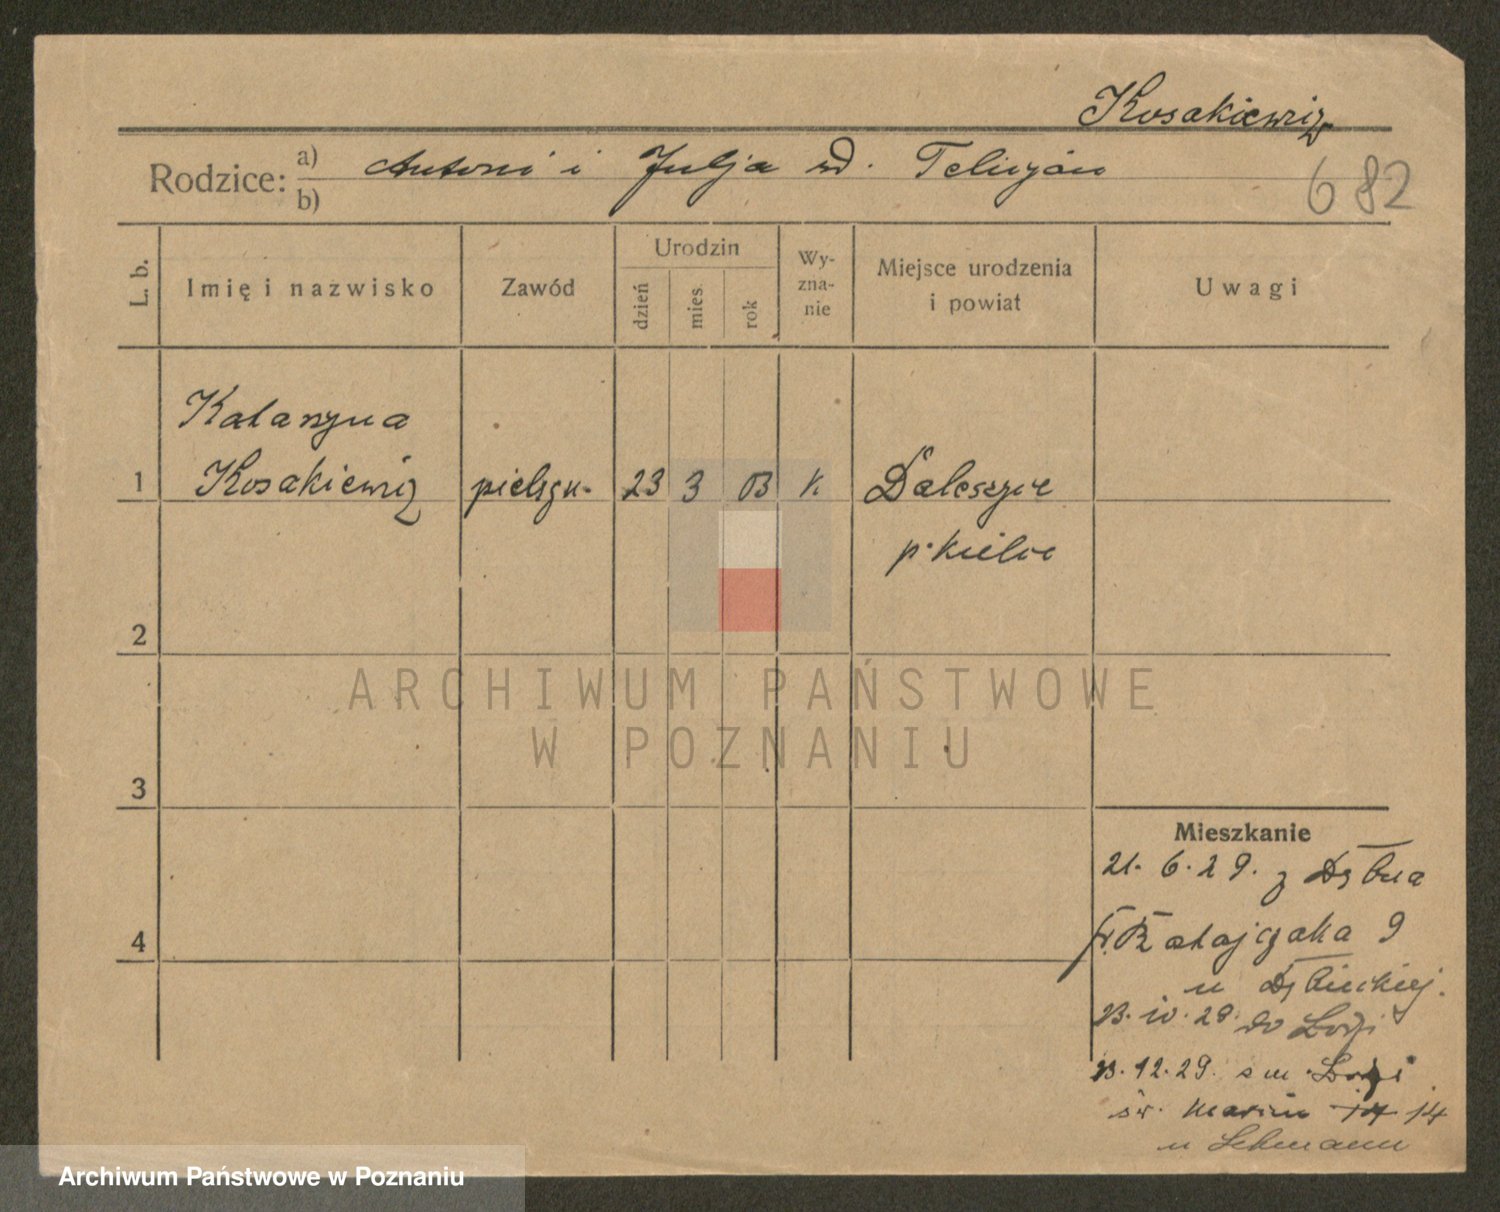 Kosakiewicz
Rodzice: a) Antoni i Julja
b)
682
L. b.
Imię i nazwisko
Zawód
Urodzin
dzień
mies.
rok
Wy-
zna-
nie
Miejsce urodzenia
i powiat
Uwagi
Katarzyna
1 Kosakiewicz pielęgn. 23 3 03 K Daleszyce
p. Kielce
2
ARCHIWUM PAŃSTWOWE
W POZNANIU
3
Mieszkanie
21. 6. 29. z
Fr. Ratajczaka 9
4
u
do Łodzi
12. 29. Łodzi
św. Marcin 14
u Lehmann
Archiwum Państwowe w Poznaniu